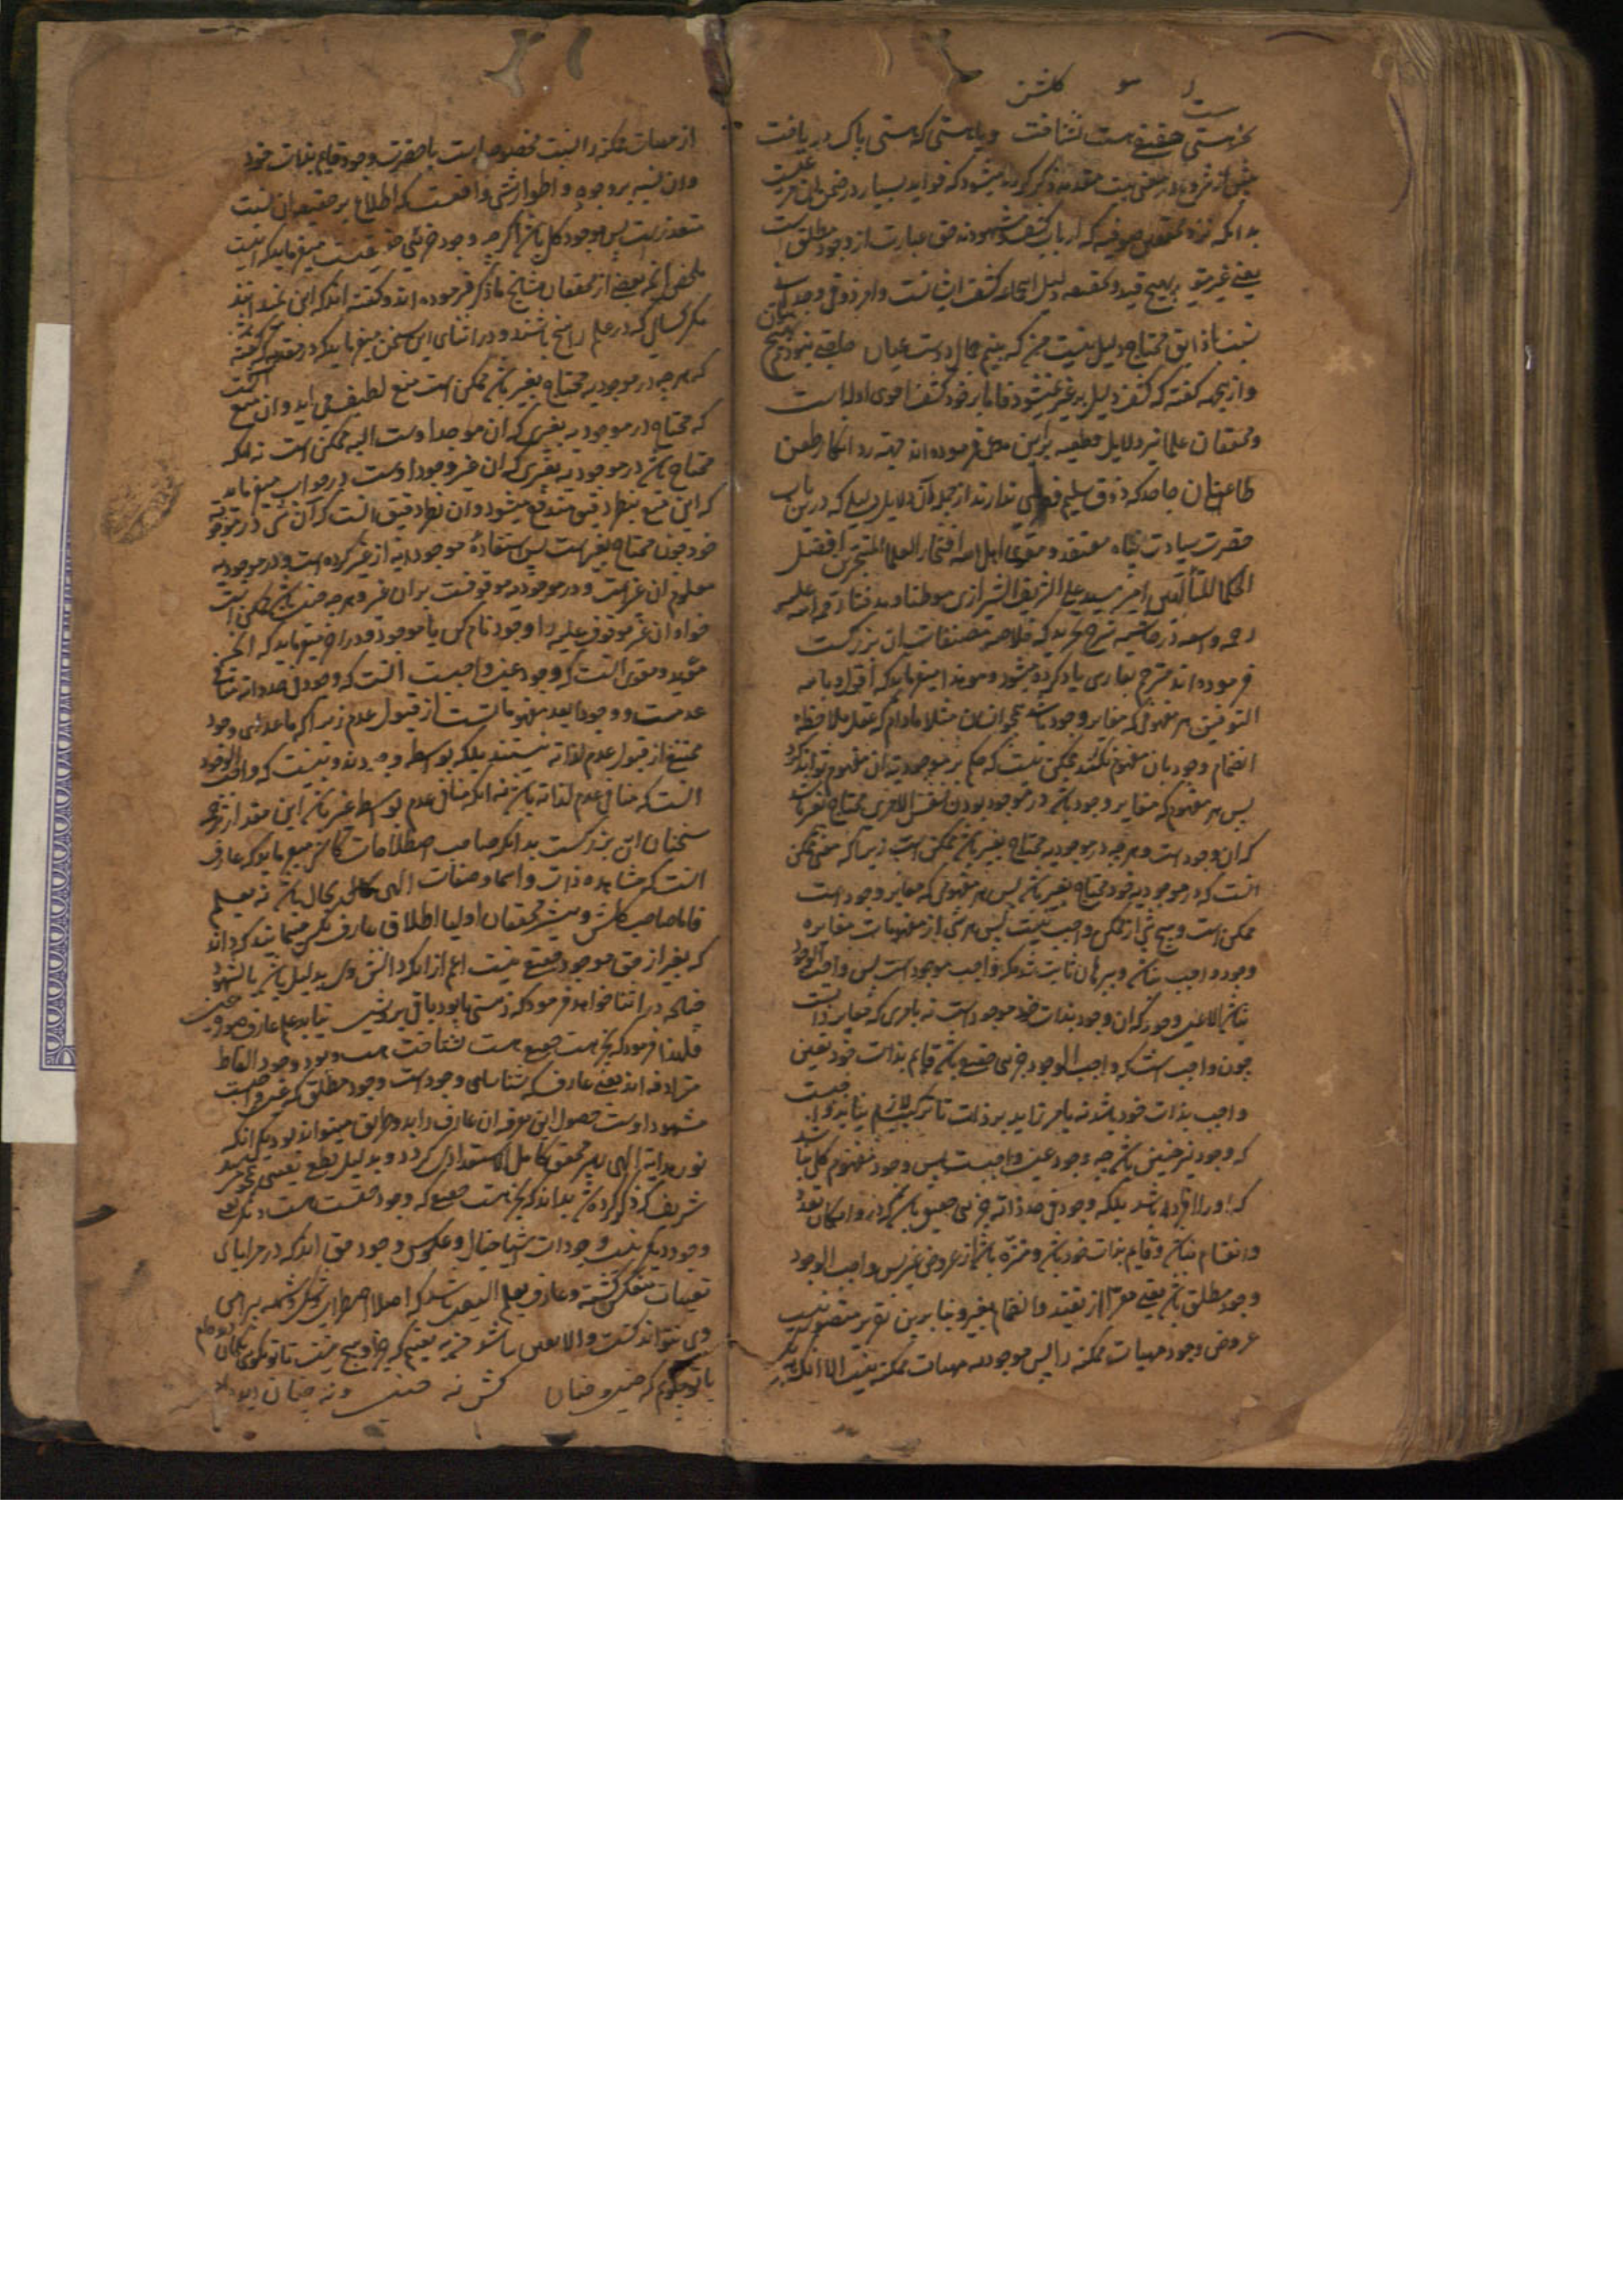 گلشن
بجز هستی حقیقی هست نشناخت و یا هستی که هستی پاک در باخت
پیش از شروع در معنی بیت مقدمه ذکر کرده میشود که فواید بسیار در ضمن آن
بدانکه نزد محققین صوفیه که ارباب کشف و شهودند حق عبارت از وجود مطلق است
یعنی غیر مقید بهیچ قید و دلیل این جماعه کشف ایشانست و امر ذوقی و وجدانی
نسبت با ذایق محتاج دلیل نیست من که بینم جمال دوست عیان
و از این جهه گفته که کشف دلیل بر غیر نمیشود فاما بر خود کشف اقوی ادله است
و محققان علما نیز دلایل قطعیه برین مدعی فرموده اند جهة رد انکار و طعن
طاعنان جاحد که ذوق سلیم فطری ندارند از جمله آن دلایل دلیلی که درین باب
حضرت سیادت پناه افتخار العلما المتبحرین افضل
الحکما المتألهین امیر سید علی الشریف الشیرازی موطنا و مدفنا
رحمة واسعه در حاشیه شرح تجرید که خلاصه مصنفات آن بزرگست
فرموده اند مترجم بفارسی یاد کرده میشود و هو هذا میفرماید که اقول و بالله
التوفیق هر مفهومی که مغایر وجود باشد چون انسان مثلا مادام که عقل ملاحظه
انضمام وجود بان مفهوم نکند ممکن نیست که حکم بر موجودیت آن مفهوم تواند کرد
پس هر مفهوم که مغایر وجود باشد در موجود بودن نفس الامری محتاج بغیر باشد
که آن وجود است و هر چه در موجودیه محتاج بغیر باشد ممکن است زیرا که معنی ممکن
آنست که در موجودیه خود محتاج بغیر باشد پس هر مفهومی که مغایر وجود است
ممکن است و هیچ شی از ممکن واجب نیست پس هر شی از مفهومات مغایره
وجود واجب نباشد و ببرهان ثابت شد که واجب موجود است پس واجب الوجود
نباشد الا عین وجود که آن وجود بذات خود موجود است نه بامری که مغایر ذاتست
چون واجب است که واجب الوجود جزئی حقیقی باشد و قایم بذات خود و تعین
واجب بذات خود باشد نه بامر زاید بر ذات تا ترکیب لازم نیاید
که وجود نیز چنین باشد چه وجود عین واجبست پس وجود مفهوم کلی نباشد
که او را افراد باشد بلکه وجود فی حد ذاته جزئی حقیقی باشد که در او امکان تعدد
و انقسام نباشد و قایم بذات خود باشد و منزه باشد از عروض غیر پس واجب الوجود
وجود مطلق باشد یعنی معرا از تقید و انضمام بغیر و بنا برین تقریر متصور نیست
عروض وجود مهیات ممکنه را پس موجودیه مهیات ممکنه نیست الا آنکه
از مهیات ممکنه را نسبت مخصوصه است با حضرت وجود قایم بذات خود
و آن نسبه بر وجوه و اطوار شتی واقعست که اطلاع بر حقیقه آن نسبت
متعذر است پس موجود کلی باشد اگر چه وجود جزئی حقیقیست میفرماید که اینست
ملخص آنچه بعضی از محققان مشایخ ما ذکر فرموده اند و گفته اند که این نمیدانند
مگر کسانی که در علم راسخ باشند و در اثنای این سخن میفرماید که در مقدمه که گفته
که هر چه در موجودیه محتاج بغیر باشد ممکن است منع لطیف می آید و آن منع آنست
که محتاج در موجودیه بغیری که آن موجد اوست البته ممکن است نه آنکه
محتاج باشد در موجودیه بغیری که آن غیر وجود اوست در جواب میفرماید
که این منع بنظر دقیق مندفع میشود و آن نظر دقیق آنست که آن شی در موجودیه
خود چون محتاج بغیر است پس استفاده موجودیه از غیر کرده است و در موجودیه
معلول آن غیر است و در موجودیه موقوفست بران غیر و هر چه چنین باشد ممکن است
خواه آن غیر موقوف علیه را وجود نام کن یا موجود و در آخر میفرماید که آنچه
مؤید و مقوی آنست که وجود عین واجبست آنست که وجود فی حد ذاته منافی
عدمست و وجود ابعد مفهوماتست از قبول عدم زیرا که ماعدای وجود
ممتنع از قبول عدم لذاته نیستند بلکه بواسطه وجودند و نیست که واجب الوجود
آنست که منافی عدم لذاته باشد نه آنکه منافی عدم بواسطه غیر باشد این مقدار ترجمه
سخنان این بزرگست بدانکه صاحب اصطلاحات کاشی میفرماید که عارف
آنست که مشاهده ذات و اسما و صفات الهی بحال باشد نه بعلم
فاما صاحب گلشن و بیشتر محققان اولیا اطلاق عارف بکسی مینمایند که داند
که بغیر از حق موجود حقیقی نیست اعم از آنکه دانش وی بدلیل باشد یا بشهود
چنانچه در اثنا خواهد فرمود که ز هستی تا بود باقی برو شین نیابد علم عارف صورت عین
فلهذا فرمود که بجز هست حقیقی هست نشناخت هست و بود و وجود الفاظ
مترادفه اند یعنی عارف که شناسای وجود است وجود مطلق که عین واجبست
مشهود اوست حصول این معرفه آن عارف را بدو طریق میتواند بود یکی آنکه
نور هدایه الهی رهبر محقق کامل الاستعدادی گردد و بدلیل قطع یقینی
شریف که ذکر کرده شد بداند که بجز هست حقیقی که وجود حقست هست دیگر و بغیر
وجود دیگر نیست وجودات اشیا خیال و عکوس وجود حق اند که در مرایای
تعینات منعکس گشته و عارف بعلم الیقین باشد که اصلا اضطراب و شک و شبهه پیرامن
وی نتواند گشت و الا یقین نباشد
با تو چگویم که چنین و چنان کش نه چنین و نه چنان